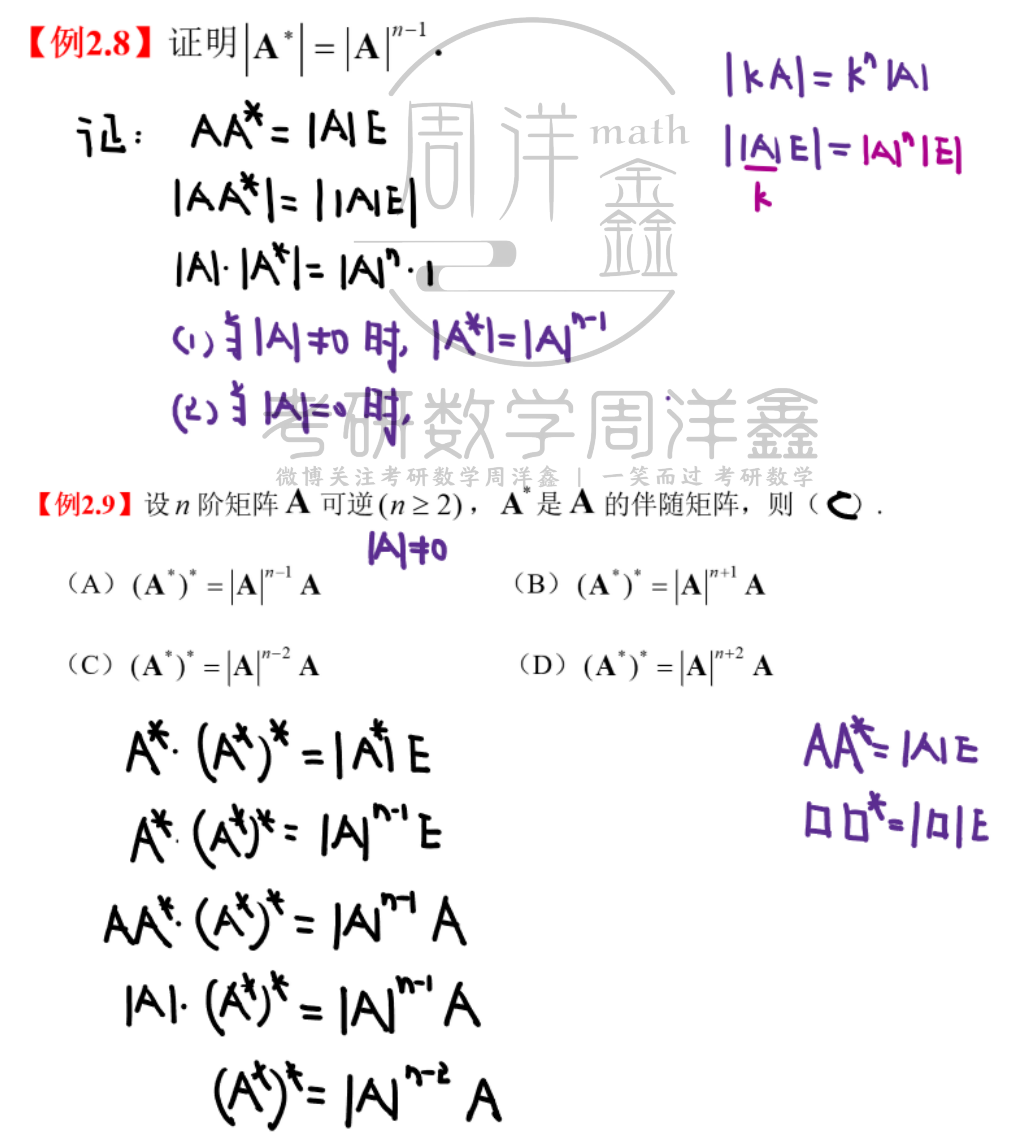 【例2.8】证明|A*|=|A|ⁿ⁻¹.
证: AA*=|A|E
|kA|=kⁿ|A|
||A|E|=|A|ⁿ|E|
k
|AA*|=||A|E|
|A|·|A*|=|A|ⁿ·1
(1)当|A|≠0时, |A*|=|A|ⁿ⁻¹
(2)当|A|=0时,
周洋鑫 math
考研数学周洋鑫
微博关注考研数学周洋鑫 | 一笑而过 考研数学
【例2.9】设n阶矩阵A可逆(n≥2),A*是A的伴随矩阵,则(C).
|A|≠0
(A)(A*)*=|A|ⁿ⁻¹A
(B)(A*)*=|A|ⁿ⁺¹A
(C)(A*)*=|A|ⁿ⁻²A
(D)(A*)*=|A|ⁿ⁺²A
A*·(A*)*=|A*|E
A*·(A*)*=|A|ⁿ⁻¹E
AA*·(A*)*=|A|ⁿ⁻¹A
|A|·(A*)*=|A|ⁿ⁻¹A
(A*)*=|A|ⁿ⁻²A
AA*=|A|E
□□*=|□|E